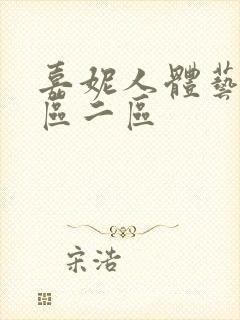 嘉妮人體藝
區二區
宋浩